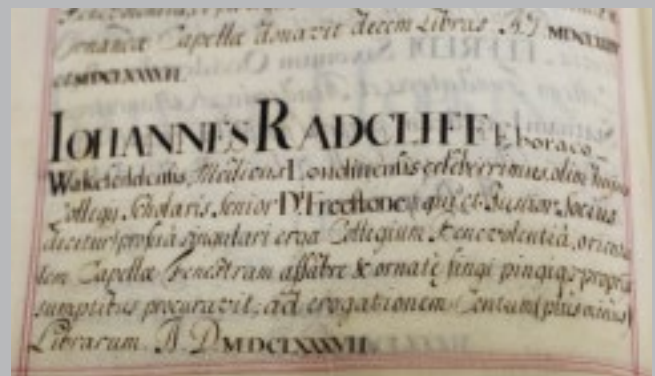 Ornandæ Capellæ donavit decem Libras A.D.
et MDCLXXXVII.
IOHANNES RADCLIFF Eboraco-
Wakefeldensis, Medicus Londinensis celeberrimus, olim hujus
Collegii Scholaris Senior Dr. Freestone, qui et Junior Socius
dicitur, pro suâ singulari erga Collegium Benevolentiâ, orienta
lem Capellæ fenestram affabre & ornatè fingi pingiq; propriis
sumptibus procuravit, ad erogationem Centum plus minus
Librarum. A. D. MDCLXXXVII.